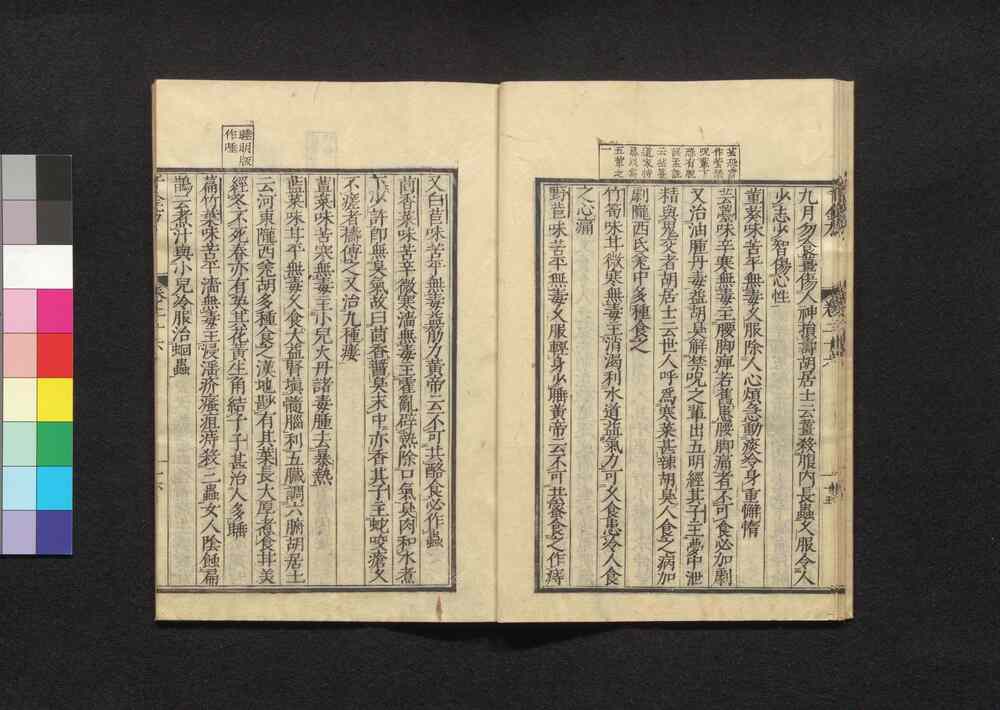 九月勿食薑傷人神損壽胡居士云薑殺腹內長蟲久服令人
少志少智傷心性
菫葵味苦平無毒久服除人心煩急動痰冷身重懈惰
芸薹味辛寒無毒主腰脚痹若舊患腰脚痛者不可食必加劇
又治油腫丹毒益胡臭解禁呪之輩出五明經其子主夢中泄
精與鬼交者胡居士云世人呼爲寒菜甚辣胡臭人食之病加
劇隴西氐羌中多種食之
竹筍味甘微寒無毒主消渴利水道益氣力可久食患冷人食
之心痛
野苣味苦平無毒久服輕身少睡黃帝云不可共蜜食之作痔
又白苣味苦平無毒益筋力黃帝云不可共酪食必作蟲
茴香菜味苦辛微寒濇無毒主霍亂辟熱除口氣臭肉和水煮
下少許卽無臭氣故曰茴香醬臭末中亦香其子主蛇咬瘡久
不瘥者擣傅之又治九種瘻
蕈菜味苦寒無毒主小兒火丹諸毒腫去暴熱
藍菜味甘平無毒久食大益腎填髓腦利五臟調六腑胡居士
云河東隴西羌胡多種食之漢地尠有其葉長大厚煮食甘美
經冬不死春亦有英其花黃生角結子子甚治人多睡
萹竹葉味苦平濇無毒主浸淫疥瘙疽痔殺三蟲女人陰蝕扁
鵲云煮汁與小兒冷服治蛔蟲
睡明版
作唾